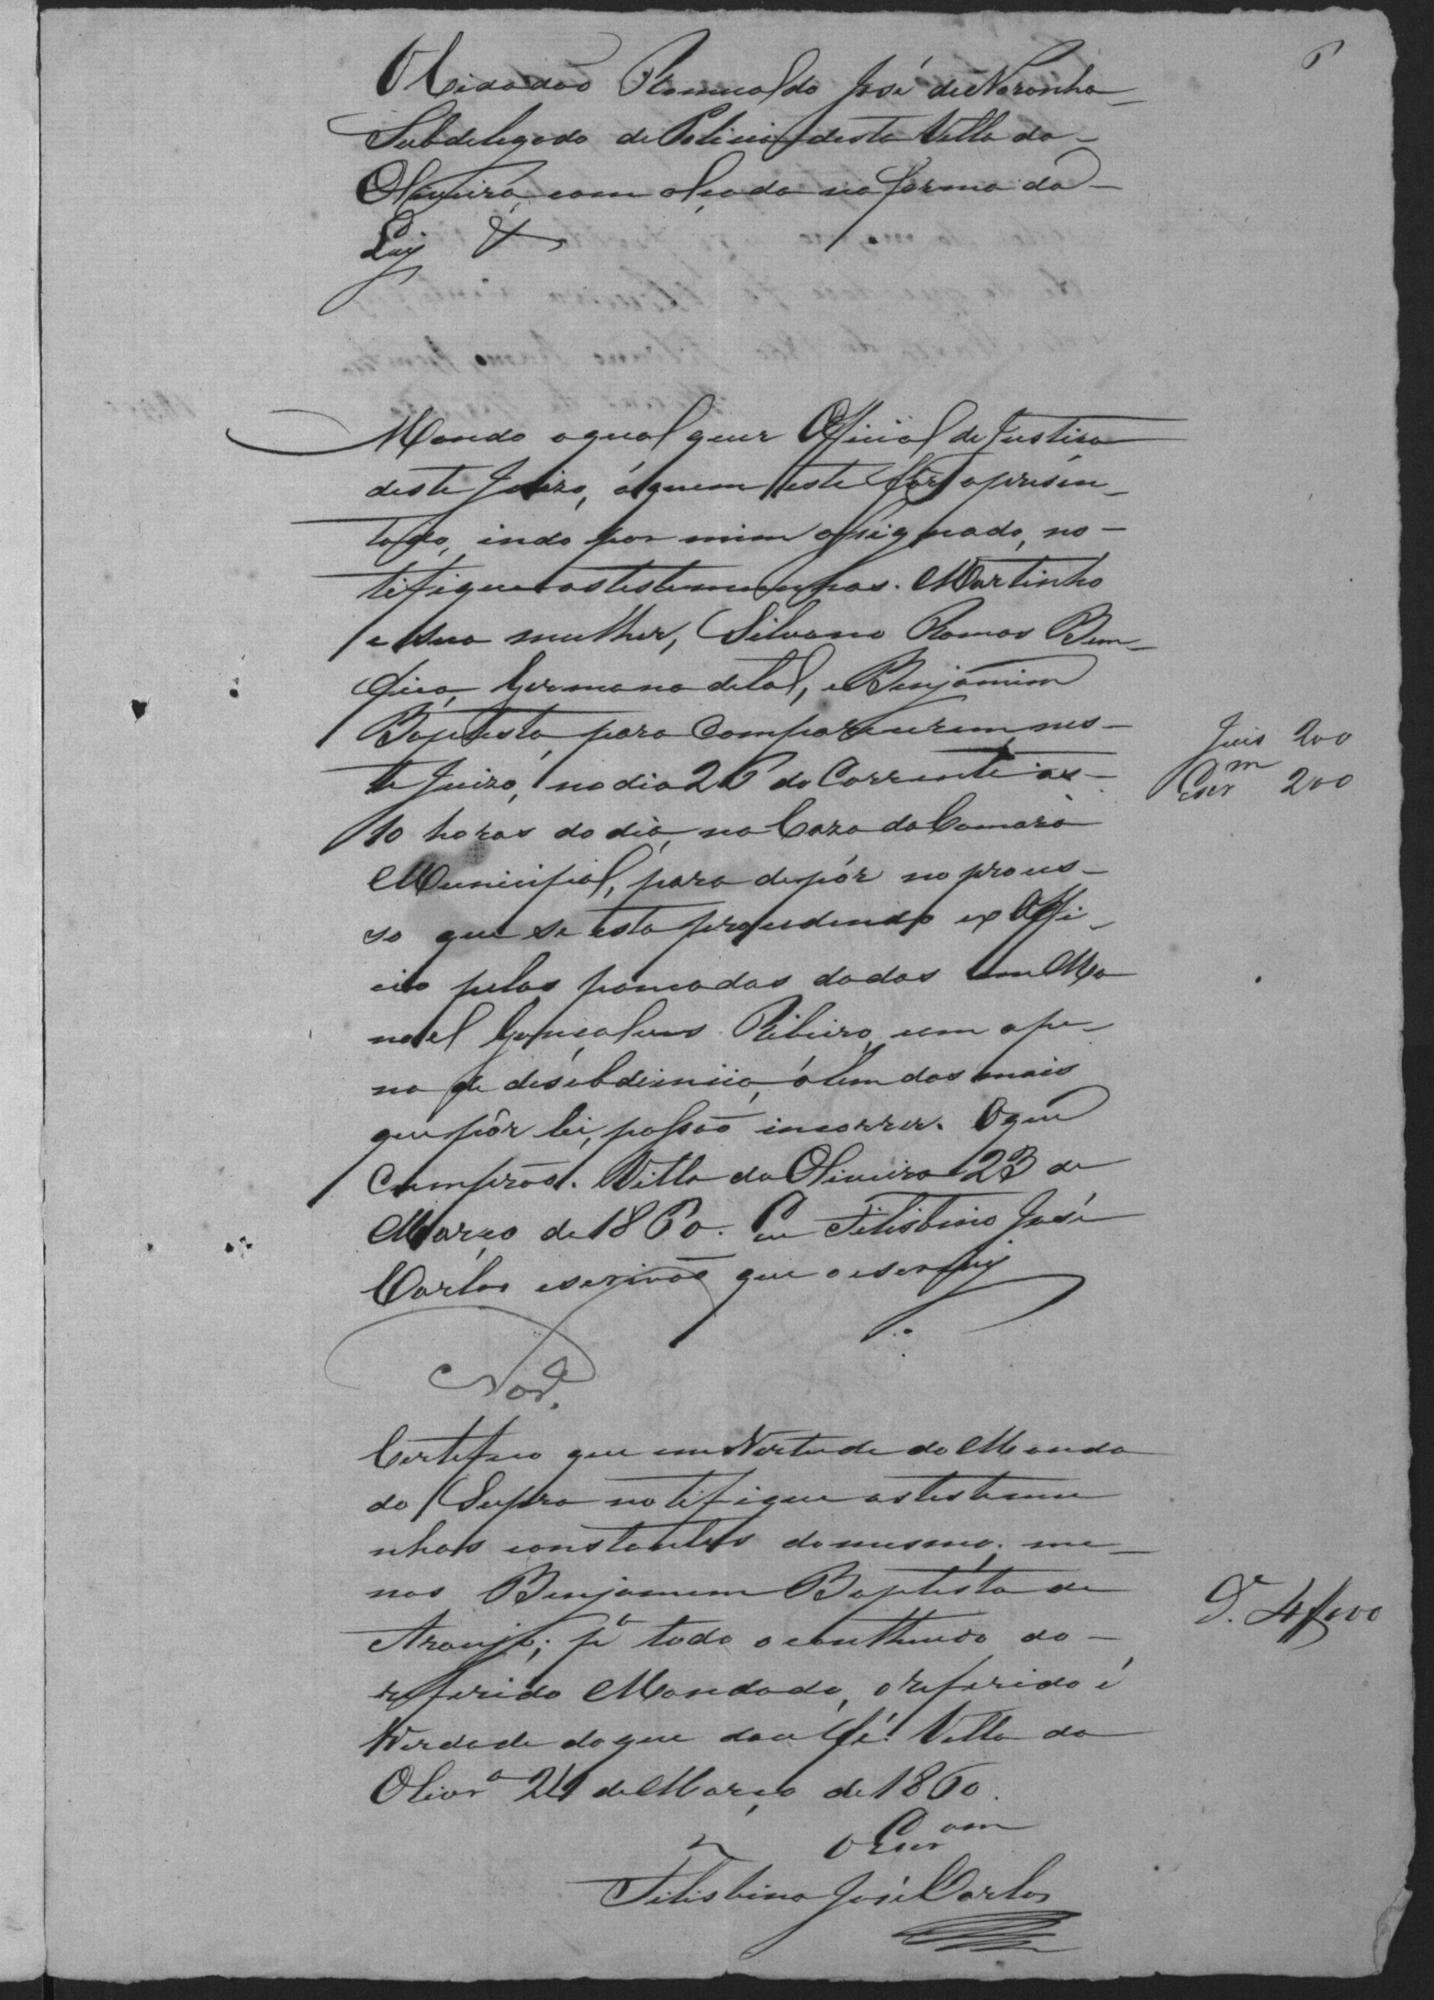 6
O Cidadão Romualdo José de Noronha
Subdelegado de Policia desta Villa da
Oliveira, com alçada na forma da
Ley &
Mando aqual quer Official de Justiça
deste Juizo, á quem este fôr apresen-
tado, indo por mim assignado, no-
tifique as testemunhas. Martinho
e sua mulher, Silvano Ramos Bem-
fica, Germano de tal, e Benjamim
Baptista, para comparecerem nes-
te Juizo, no dia 26 do Corrente as
10 horas do dia, na Caza da Camara
Municipal, para depôr no proces-
so que se esta procedendo ex Offi-
cio pelas pancadas dadas em Ma
noel Gonçalves Ribeiro, com a pe-
na de desobdiencia, álem das mais
que pôr lei, possão incorrer. O que
cumprão. Villa da Oliveira 23 de
Março de 1860. Eu Felisbino José
Carlos escrivão que o escrevy
Juis 200
Escr^m 200
Nor.^a
Certefico que em Vertude do Manda
do Supra notifique as testemu
nhas constantes do mesmo, me-
nos Benjamim Baptista de
Araujo; p^r todo o conthiudo do
referido Mandado, o referido é
Verdade do que dou fé. Villa da
Oliv^ra 24 de Março de 1860.
D. 4$000
O Escr^vam
Felisbino José Carlos